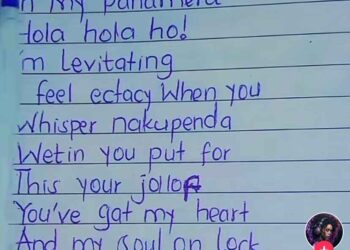 my panamera
Hola hola ho!
I'm levitating
feel ectacy When you
Whisper nakupenda
Wetin you put for
This your jollof
You've gat my heart
And my soul on lock